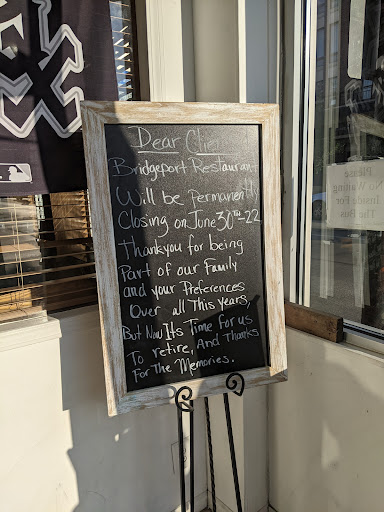 Dear Clients
Bridgeport Restaurant
Will be permanently
Closing on June 30th-22
thankyou for being
Part of our Family
and your Preferences
Over all This years,
But Now Its Time For us
To retire, And Thanks
For The Memories.
Please
No Waiting
Inside For
The Bus